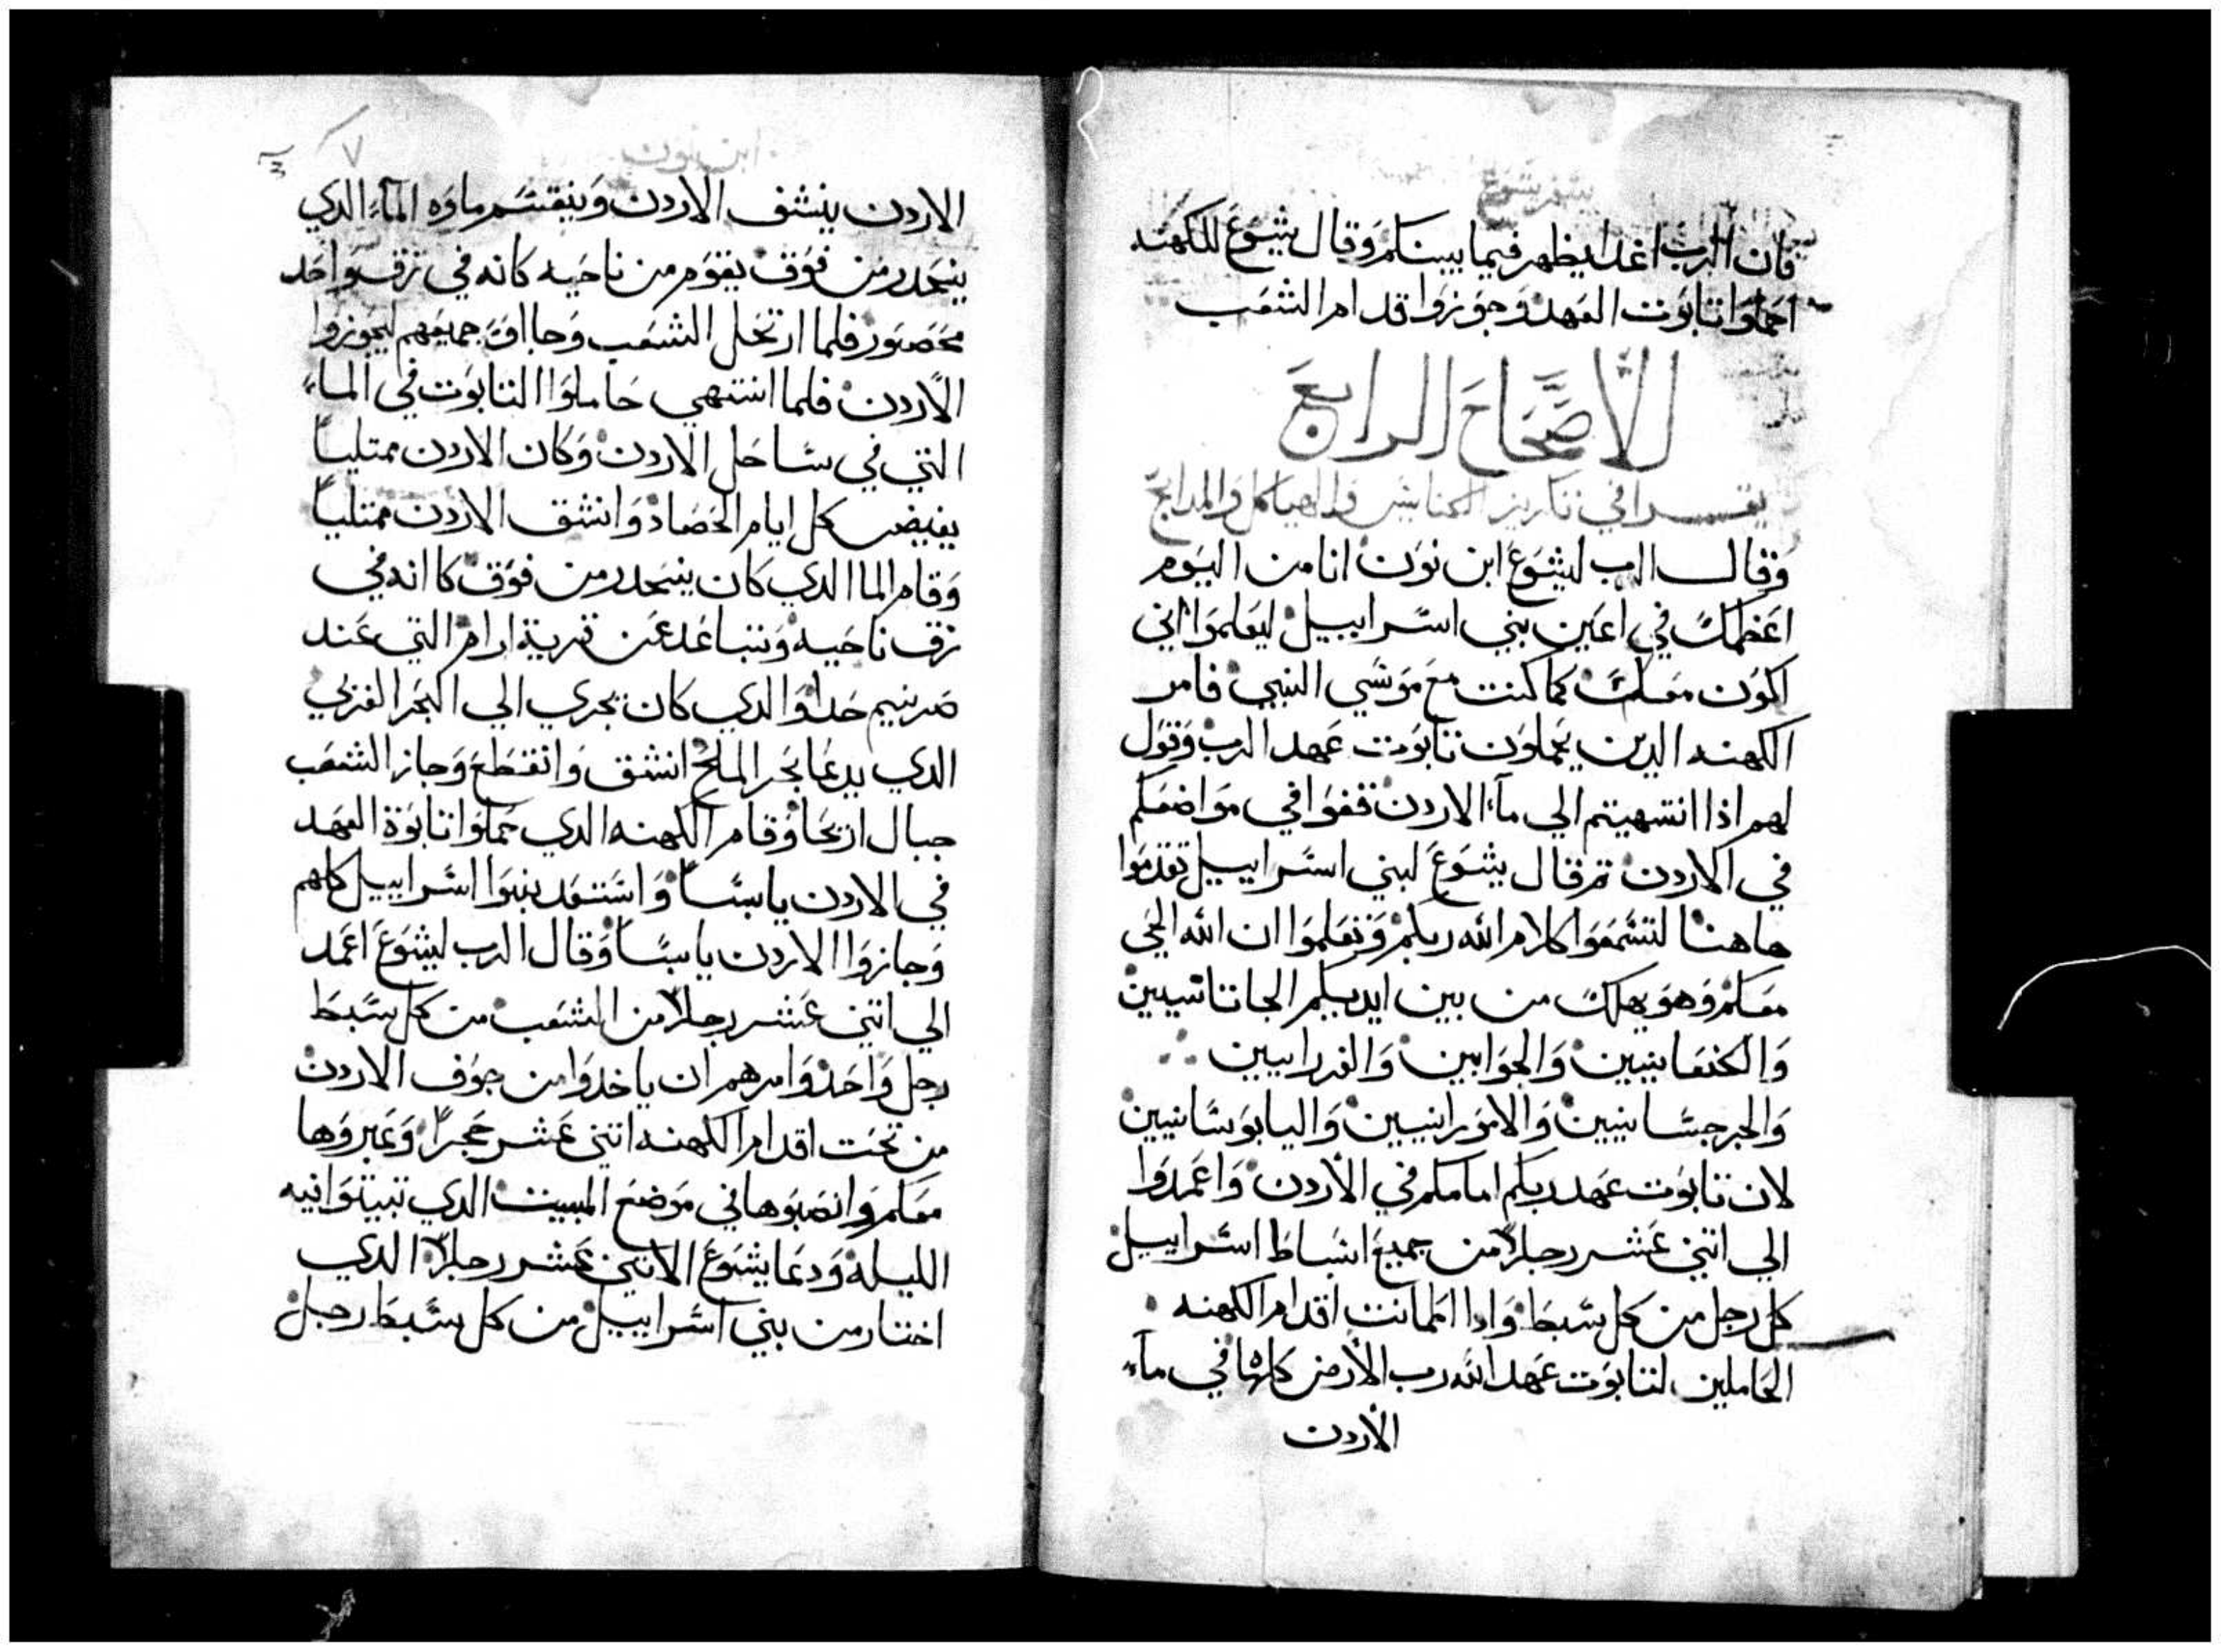 سفر يشوع
فان الرب اغدا يظهر فيما بينكم وقال يشوع للكهنه
احملوا تابوت العهد وجوزوا قدام الشعب
الأصحاح الرابع
يقسرا في تكريز الكنايس والهياكل والمدابح
وقال الرب ليشوع ابن نون انا من اليوم
اعظمك في اعين بني اسراييل ليعلموا اني
اكون معك كما كنت مع موسي النبي فامر
الكهنه الدين يحملون تابوت عهد الرب وقول
لهم اذا انتهيتم الي مآء الاردن قفوا في مواضعكم
في الاردن تم قال يشوع لبني اسراييل تقدموا
هاهنا لتسمعوا كلام الله ربكم وتعلموا ان الله الحي
معكم وهو يهلك من بين ايديكم الجاتانيين
والكنعانيين والجوايين والفرايين
والجرجسانيين والامورانيين واليابوسانيين
لان تابوت عهد ربكم امامكم في الأردن واعمدوا
الي اتني عشر رجلاً من جميع اسباط اسراييل
كل رجل من كل سبط وادا اطمانت اقدام الكهنه
الحاملين لتابوت عهد الله رب الأرض كلها في مآء
الأردن
ابن نون
٧
الاردن ينشف الاردن وينقسم ماوه المآء الدي
ينحدر من فوق يقوم من ناحيه كانه في زق واحد
محصور فلما ارتحل الشعب وجااوة جميعهم ليجوزوا
الأردن فلما انتهي حاملوا التابوت في الماء
التي في ساحل الاردن وكان الاردن ممتلياً
يفيض كل ايام الحصاد وانشق الاردن ممتلياً
وقام الما الدي كان ينحدر من فوق كاانه في
زق ناحيه وتباعد عن قرية ارام التي عند
صرنيم حدا والدي كان يجري الي البحر الغربي
الدي يدعا بحر الملح انشق وانقطع وجاز الشعب
جبال اريحا وقام الكهنه الدي حملوا تابوة العهد
في الاردن يابساً واستعد بنوا اسراييل كلهم
وجازوا الاردن يابساً وقال الرب ليشوع اعمد
الي اتني عشر رجلاً من الشعب من كل سبط
رجل واحد وامرهم ان ياخدوا من جوف الاردن
من تحت اقدام الكهنه اتني عشر حجراً وعبروها
معكم وانصبوها في موضع المبيت الدي تبيتوا فيه
الليله ودعا يشوع الاتني عشر رجلاً الدي
اختار من بني اسراييل من كل سبط رجل